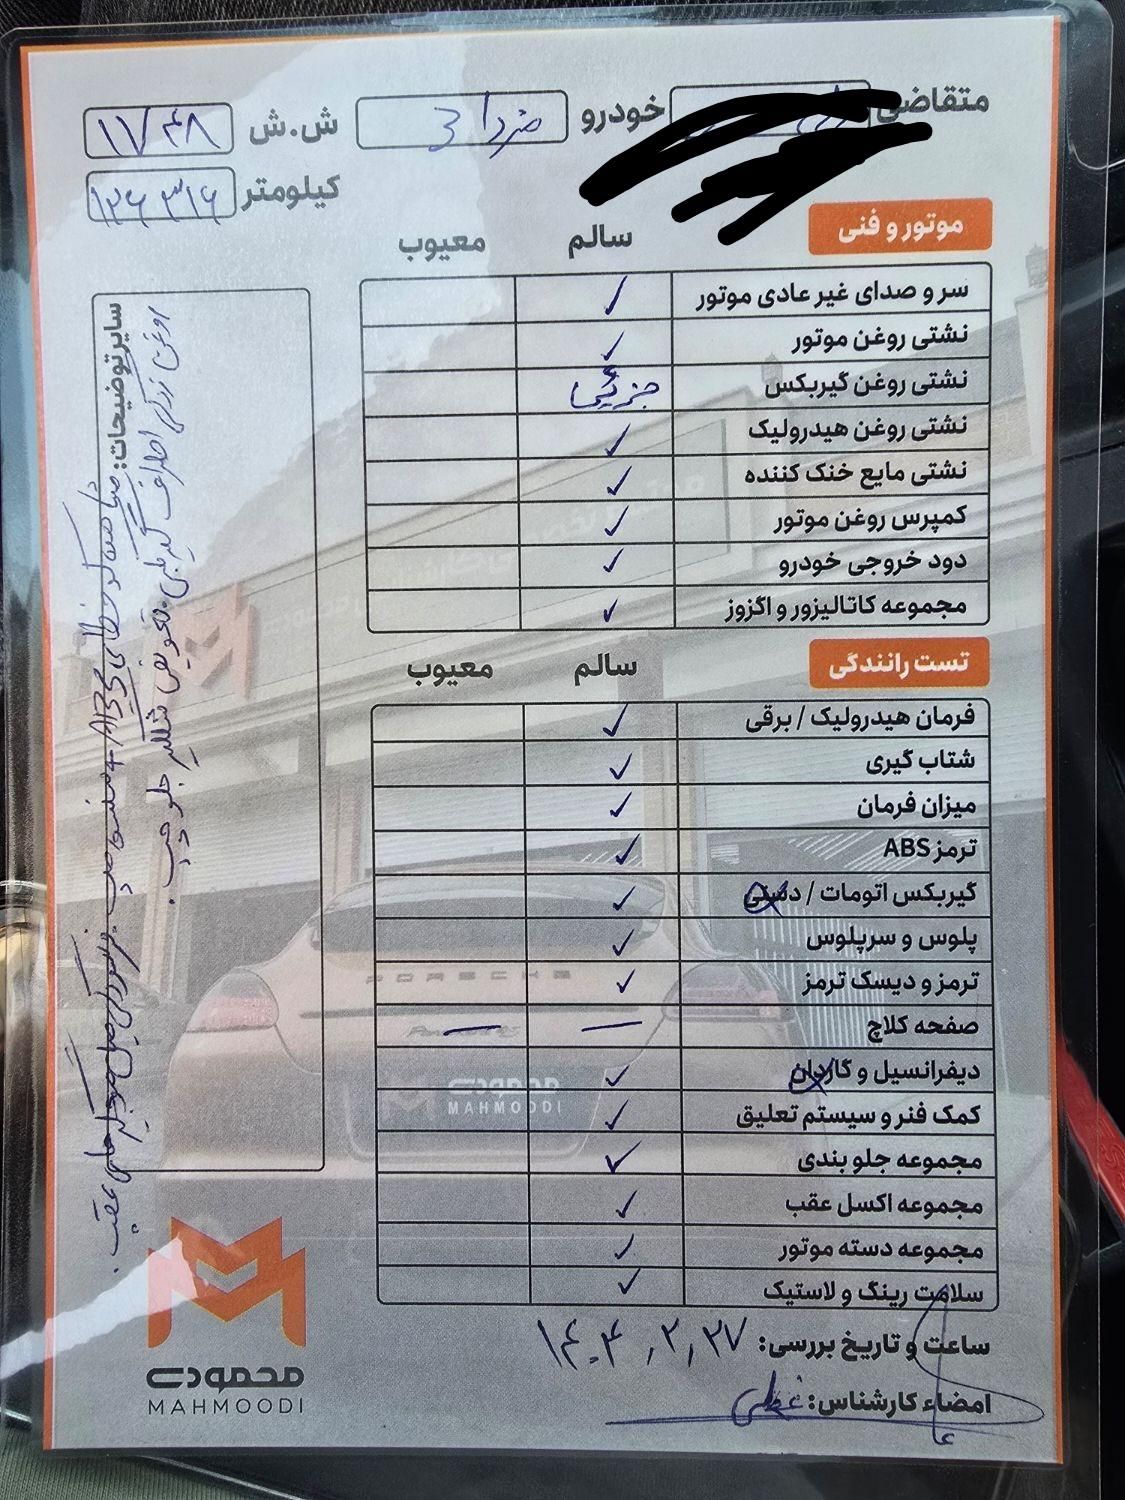 متقاضی
خودرو مزدا 3
ش.ش ۱۷۴۸
کیلومتر ۱۲۶۳۱۶
موتور و فنی
سالم معیوب
سر و صدای غیر عادی موتور ✓
نشتی روغن موتور ✓
نشتی روغن گیربکس جزئی
نشتی روغن هیدرولیک ✓
نشتی مایع خنک کننده ✓
کمپرس روغن موتور ✓
دود خروجی خودرو ✓
مجموعه کاتالیزور و اگزوز ✓
تست رانندگی
سالم معیوب
فرمان هیدرولیک / برقی ✓
شتاب گیری ✓
میزان فرمان ✓
ترمز ABS ✓
گیربکس اتومات / دستی ✓
پلوس و سرپلوس ✓
ترمز و دیسک ترمز ✓
صفحه کلاچ — —
دیفرانسیل و گاردان ✓
کمک فنر و سیستم تعلیق ✓
مجموعه جلو بندی ✓
مجموعه اکسل عقب ✓
مجموعه دسته موتور ✓
سلامت رینگ و لاستیک ✓
ساعت و تاریخ بررسی: ۱۴۰۴,۲,۲۷
امضاء کارشناس:
سایر توضیحات: خطای ABS عقب.
روغن زدگی اطراف گیربکس. تعویض شلگیر جلو چپ.
PORSCHE
محمودی
MAHMOODI
محمودی
MAHMOODI